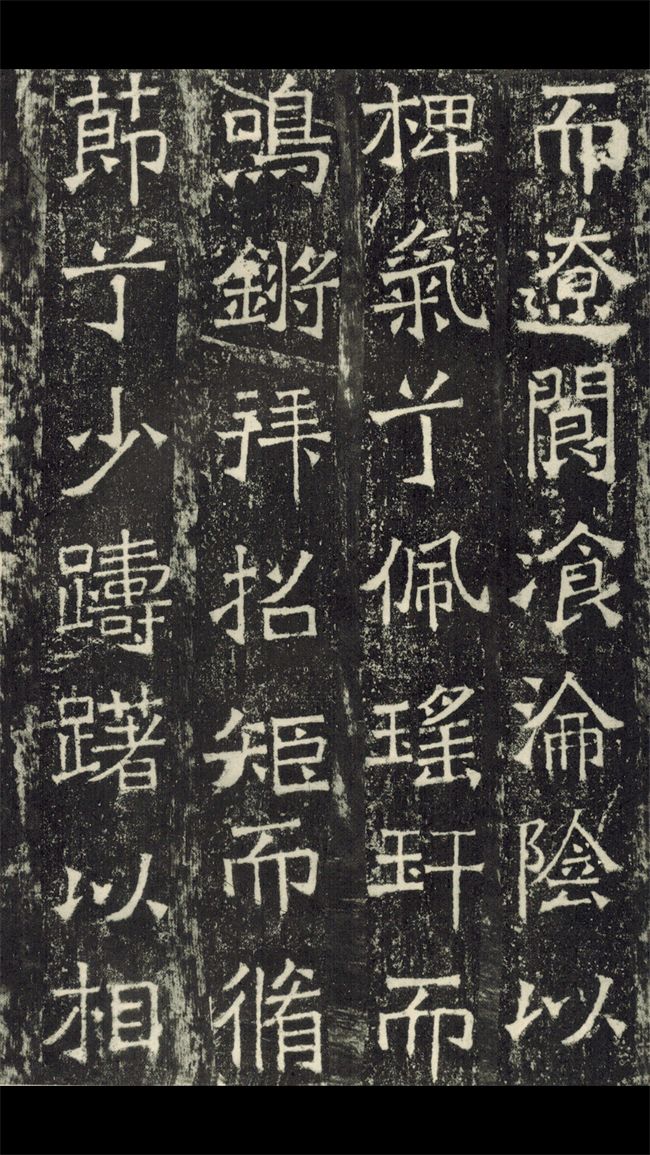 而遼閬湌淪陰以
椑氣兮佩瑤玕而
鳴鏘拜招矩而脩
節兮少躊躇以相